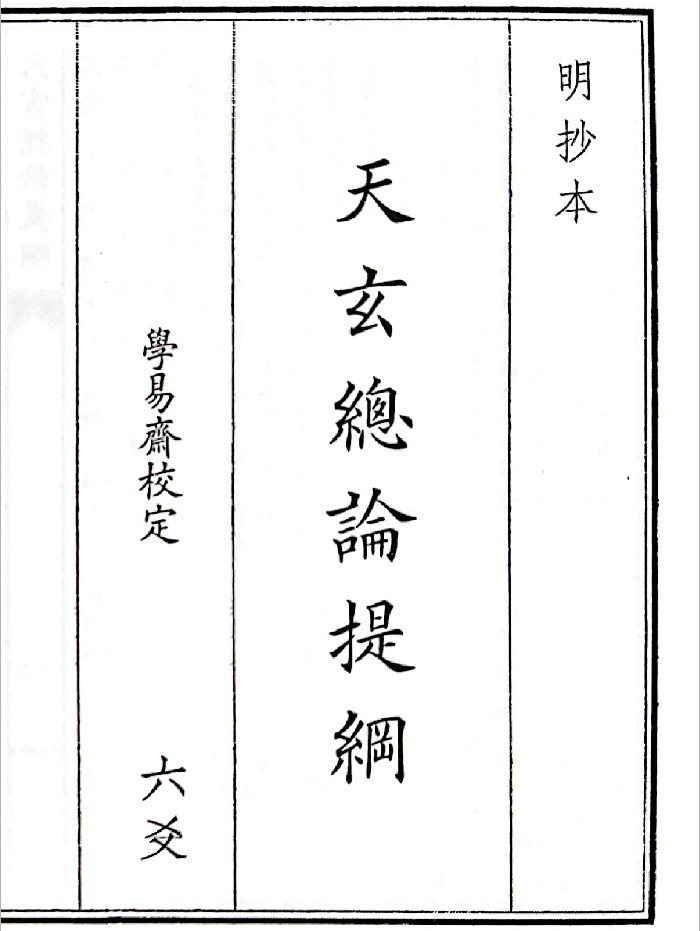 明抄本
天玄總論提綱
學易齋校定
六爻